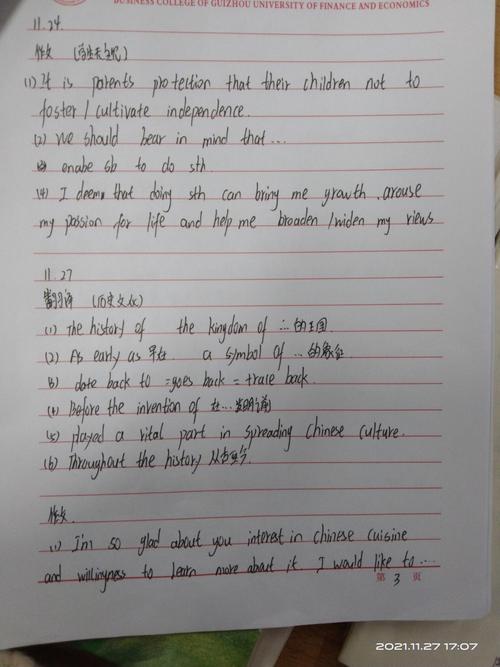 BUSINESS COLLEGE OF GUIZHOU UNIVERSITY OF FINANCE AND ECONOMICS
11.24.
作文
(1) It is parents protection that their children not to
foster / cultivate independence.
(2) We should bear in mind that...
(3) enabe sb to do sth.
(4) I deem that doing sth can bring me growth, arouse
my passion for life and help me broaden / widen my views
11.27
翻译 (历史文化)
(1) The history of the kingdom of ... 的王国
(2) As early as 早在 a symbol of ... 的象征
(3) date back to = goes back = trale back.
(4) Before the invention of 在... 发明前
(5) played a vital part in spreading Chinese culture.
(6) Throughout the history 从古至今
作文.
(1) I'm so glad about you interest in chinese cuisine
and willingness to learn more about it. I would like to ...
第 3 页
2021.11.27 17:07